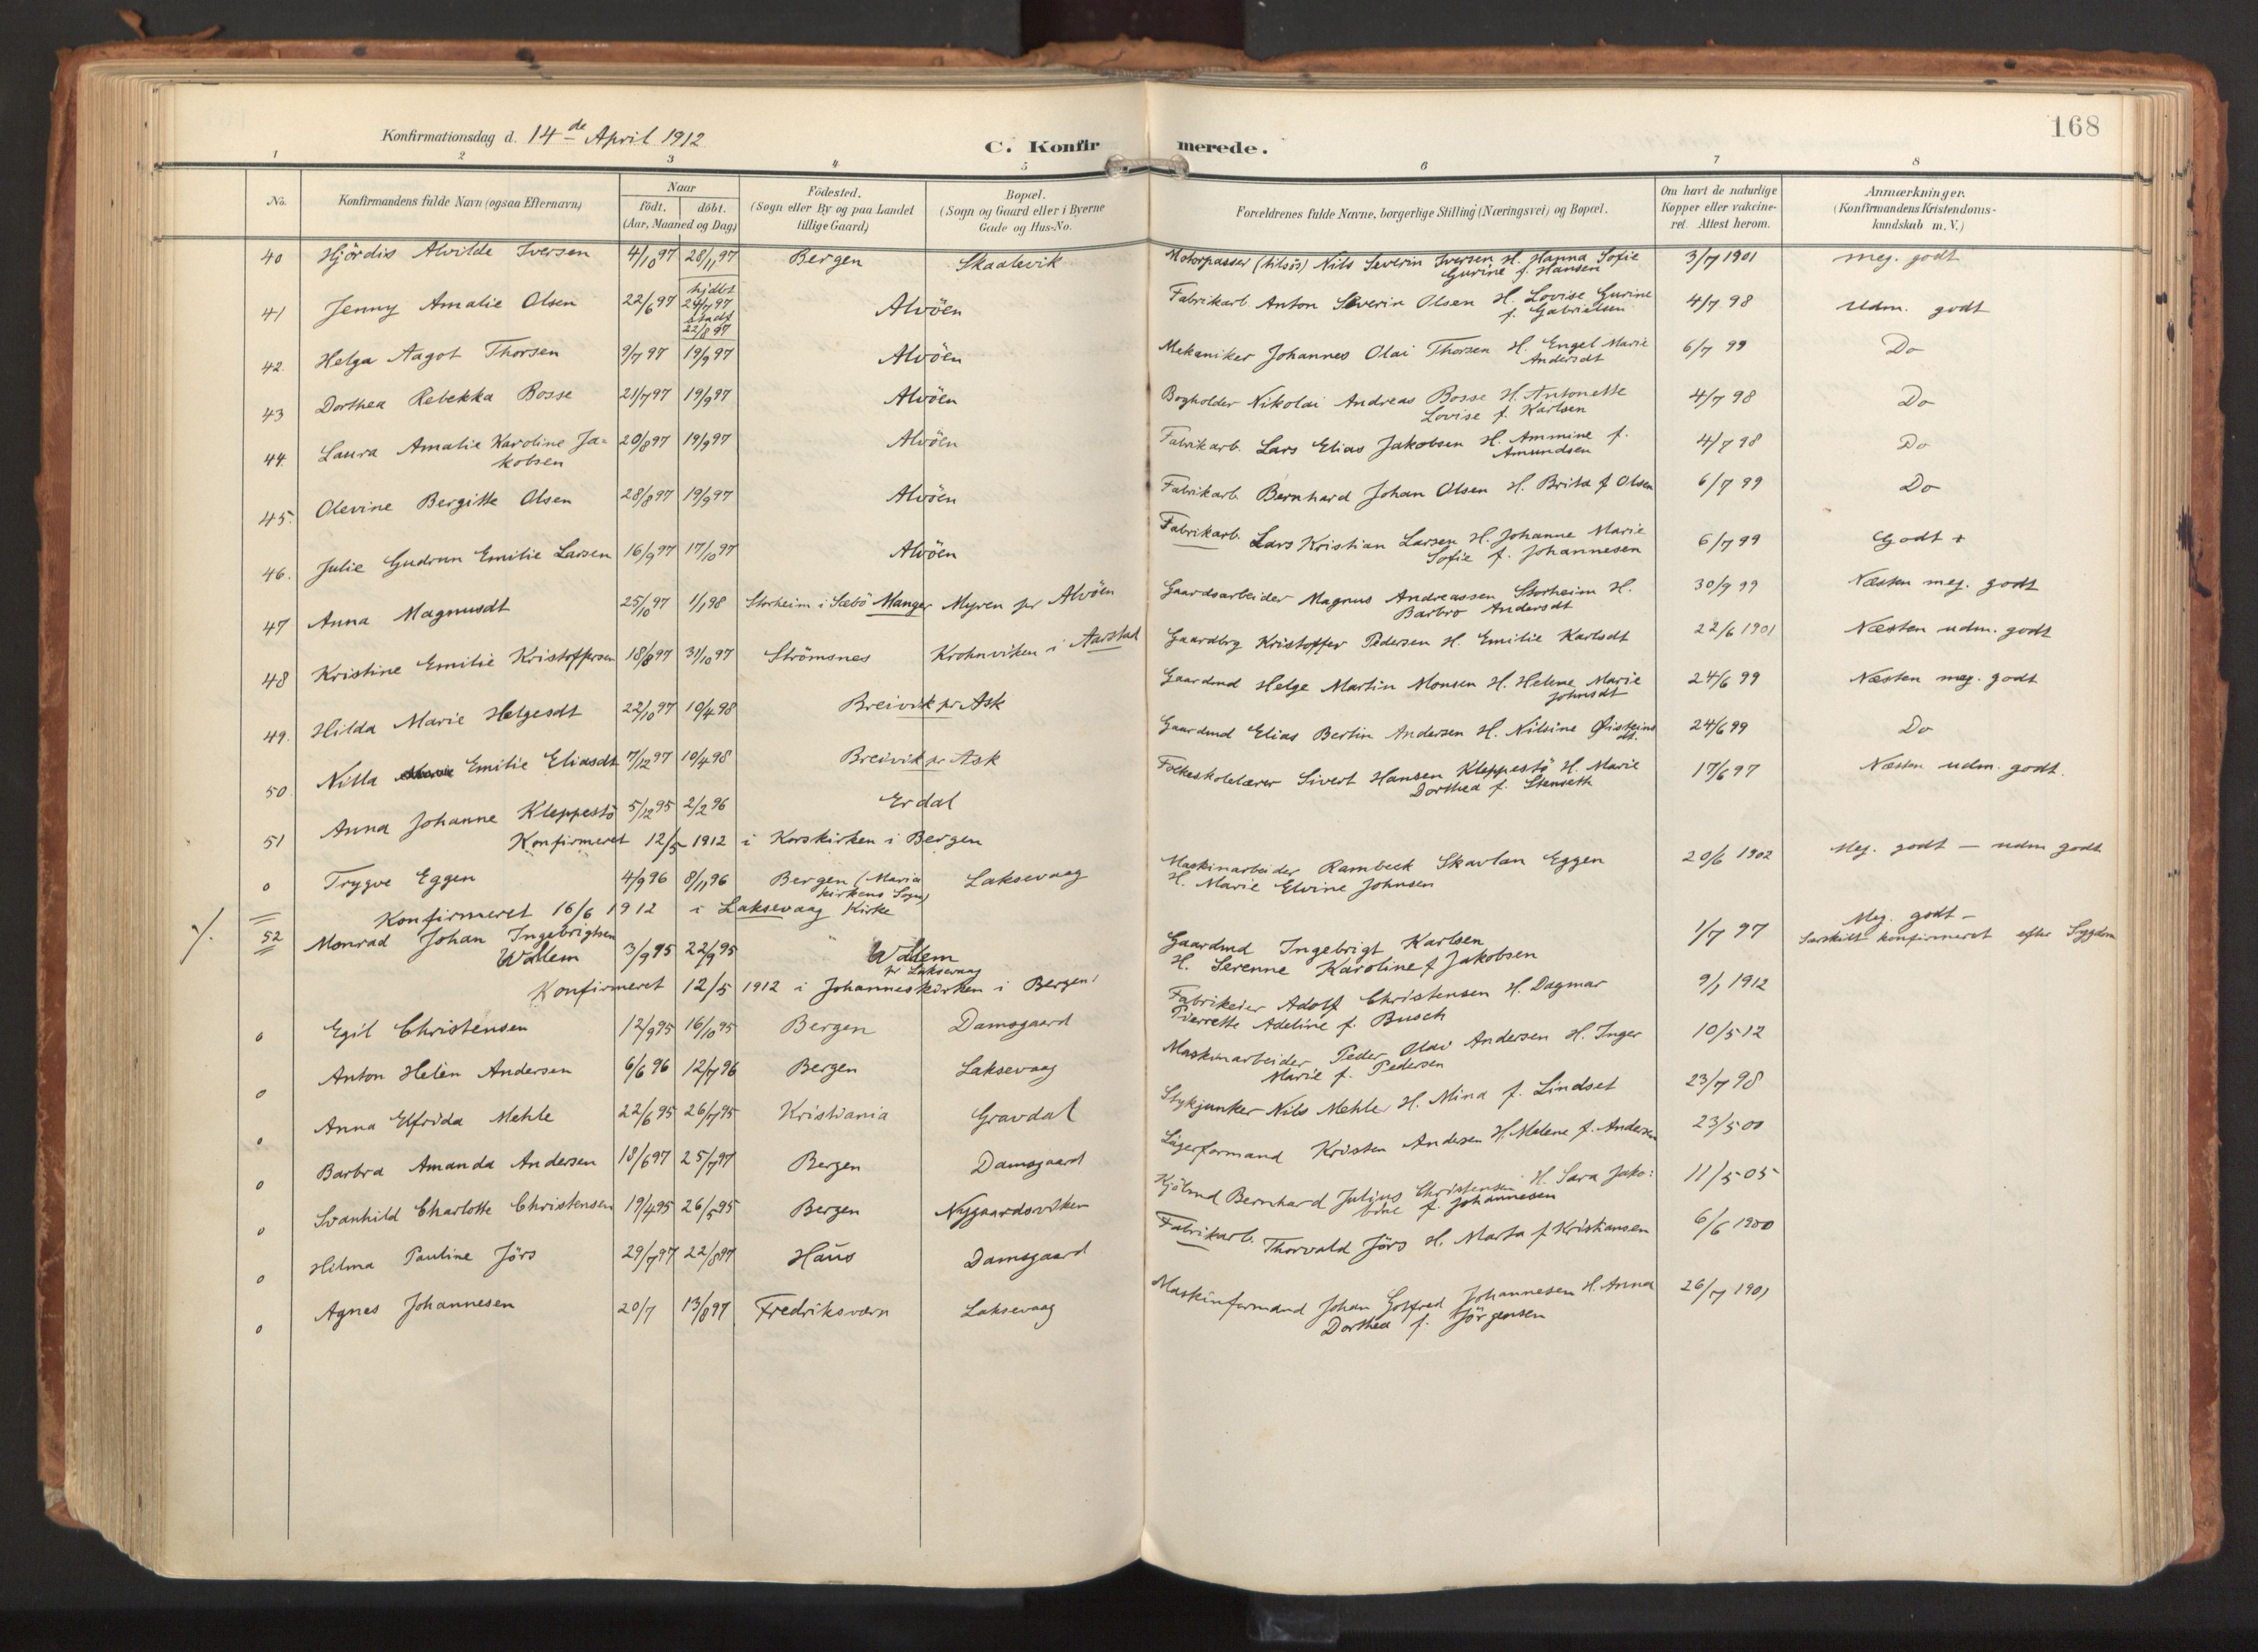 168
Konfirmationsdag d. 14de April 1912
C. Konfirmerede.
1 2 3 4 5 6 7 8
No. Konfirmandens fulde Navn (ogsaa Efternavn) Naar födt. döbt. (Aar, Maaned og Dag) Födested. (Sogn eller By og paa Landet tillige Gaard) Bopæl. (Sogn og Gaard eller i Byerne Gade og Hus-No. Forældrenes fulde Navne, borgerlige Stilling (Næringsvei) og Bopæl. Om havt de naturlige Kopper eller vakcineret. Attest herom. Anmærkninger. (Konfirmandens Kristendomskundskab m. V.)
40 Hjördis Alvilde Iversen 4/10 97 28/11 97 Bergen Skaalevik Motorpasser Nils Severin Iversen H. Hanna Sofie Gurine f. Hansen 3/7 1901 meg. godt
41 Jenny Amalie Olsen 22/6 97 hjdbt 24/7 97 stadf 22/8 97 Alvöen Fabrikarb. Anton Severin Olsen H. Lovise Gurine f. Gabrielsen 4/7 98 Udm. godt
42. Helga Aagot Thorsen 9/7 97 19/9 97 Alvöen Mekaniker Johannes Olai Thorsen H. Engel Marie Andersdt 6/7 99 Do
43 Dorthea Rebekka Bosse 21/7 97 19/9 97 Alvöen Bogholder Nikolai Andreas Bosse H. Antonette Lovise f. Karlsen 4/7 98 Do
44. Laura Amalie Karoline Ja=
kobsen 20/8 97 19/9 97 Alvöen Fabrikarb. Lars Elias Jakobsen H. Ammine f. Amundsen 4/7 98 Do
45. Olevine Bergitte Olsen 28/8 97 19/9 97 Alvöen Fabrikarb. Bernhard Johan Olsen H. Brita f Olsen 6/7 99 Do
46. Julie Gudrun Emilie Larsen 16/9 97 17/10 97 Alvöen Fabrikarb. Lars Kristian Larsen H. Johanne Marie Sofie f. Johannesen 6/7 99 Godt +
47 Anna Magnusdt 25/10 97 1/1 98 Storheim i Sæbö Manger Myren pr Alvöen Gaardsarbeider Magnus Andreassen Storheim H. Barbro Andersdt 30/9 99 Næsten meg. godt
48 Kristine Emilie Kristoffersen 18/8 97 31/10 97 Strömsnes Krohnviken i Aarstad Gaardbrg Kristoffer Pedersen H. Emilie Karlsdt 22/6 1901 Næsten udm. godt
49. Hilda Marie Helgesdt 22/10 97 10/4 98 Breivik pr Ask Gaardmd Helge Martin Monsen H. Helene Marie Johnsdt 24/6 99 Næsten meg. godt
50 Nilla Emilie Eliasdt 7/12 97 10/4 98 Breivik pr Ask Gaardmd Elias Bertin Andersen H. Nilsine Øisteins dt. 24/6 99 Do
51 Anna Johanne Kleppestö 5/12 95 2/2 96 Erdal Folkeskolelærer Sivert Hansen Kleppestö H. Marie Dorthea f. Stenseth 17/6 97 Næsten udm. godt.
Konfirmeret 12/5 1912 i Korskirken i Bergen
o Trygve Eggen 4/9 96 8/11 96 Bergen (Maria kirkens Sogn) Laksevaag Maskinarbeider Rambeck Skavlan Eggen H. Marie Elvine Johnsen 20/6 1902 Meg. godt – udm godt
Konfirmeret 16/6 1912 i Laksevaag Kirke
52 Monrad Johan Ingebrigtsen Wallem 3/9 95 22/9 95 Wallem pr Laksevaag Gaardmd Ingebrigt Karlsen H. Serenne Karoline f Jakobsen 1/7 97 Meg. godt – Særskilt konfirmeret efter Sygdom
Konfirmeret 12/5 1912 i Johanneskirken i Bergen
o Egil Christensen 12/9 95 16/10 95 Bergen Damsgaard Fabrikeier Adolf Christensen H. Dagmar Pierrette Adeline f. Busch 9/1 1912
o Anton Helen Andersen 6/6 96 12/7 96 Bergen Laksevaag Maskinarbeider Peder Olai Andersen H. Inger Marie f. Pedersen 10/5 12
o Anna Elfrida Mehle 22/6 95 26/7 95 Kristiania Gravdal Stykjunker Nils Mehle H. Mina f. Lindset 23/7 98
o Barbra Amanda Andersen 18/6 97 25/7 97 Bergen Damsgaard Lagerformand Kristen Andersen H. Malene f. Andersen 23/5 00
o Svanhild Charlotte Christensen 19/4 95 26/5 95 Bergen Nygaardsviken Kjölmd Bernhard Julius Christensen H. Sara Jako: bine f. Johannesen 11/5 05
o Hilma Pauline Jörs 29/7 97 22/8 97 Haus Damsgaard Fabrikarb. Thorvald Jörs H. Marta f Kristiansen 6/6 1900
o Agnes Johannesen 20/7 13/8 97 Fredriksværn Laksevaag Maskinformand Johan Gotfred Johannesen H. Anna Dorthea f. Jörgensen 26/7 1901